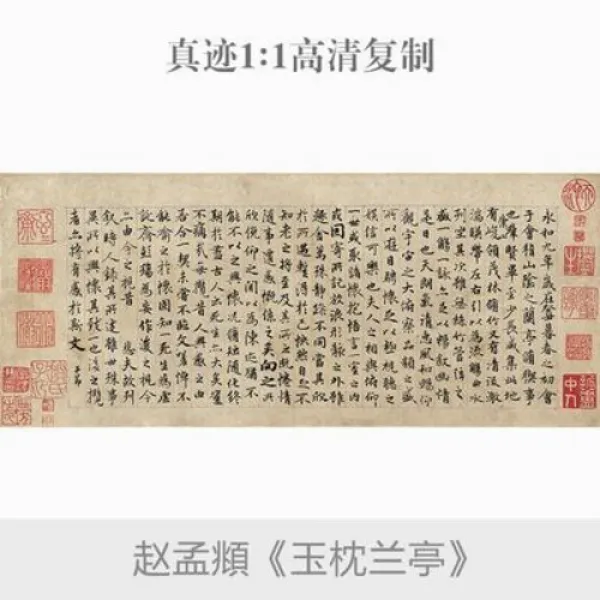 真迹1:1高清复制
永和九年歲在癸丑暮春之初會
于會稽山陰之蘭亭脩稧事
也群賢畢至少長咸集此地
有峻領茂林脩竹又有清流激
湍暎帶左右引以為流觴曲水
列坐其次雖無絲竹管弦之
盛一觴一詠亦足以暢敘幽情
是日也天朗氣清惠風和暢仰
觀宇宙之大俯察品類之盛
所以遊目騁懷足以極視聽之
娛信可樂也夫人之相與俯仰
一世或取諸懷抱悟言一室之內
或因寄所託放浪形骸之外雖
趣舍萬殊靜躁不同當其欣
於所遇蹔得於己怏然自足不
知老之將至及其所之既惓情
隨事遷感慨係之矣向之所
欣俛仰之間以為陳迹猶不
能不以之興懷況脩短隨化終
期於盡古人云死生亦大矣豈
不痛哉每攬昔人興感之由
若合一契未嘗不臨文嗟悼不
能喻之於懷固知一死生為虛
誕齊彭殤為妄作後之視今
亦由今之視昔 悲夫故列
敘時人錄其所述雖世殊事
異所以興懷其致一也後之攬
者亦將有感於斯文
赵孟頫《玉枕兰亭》